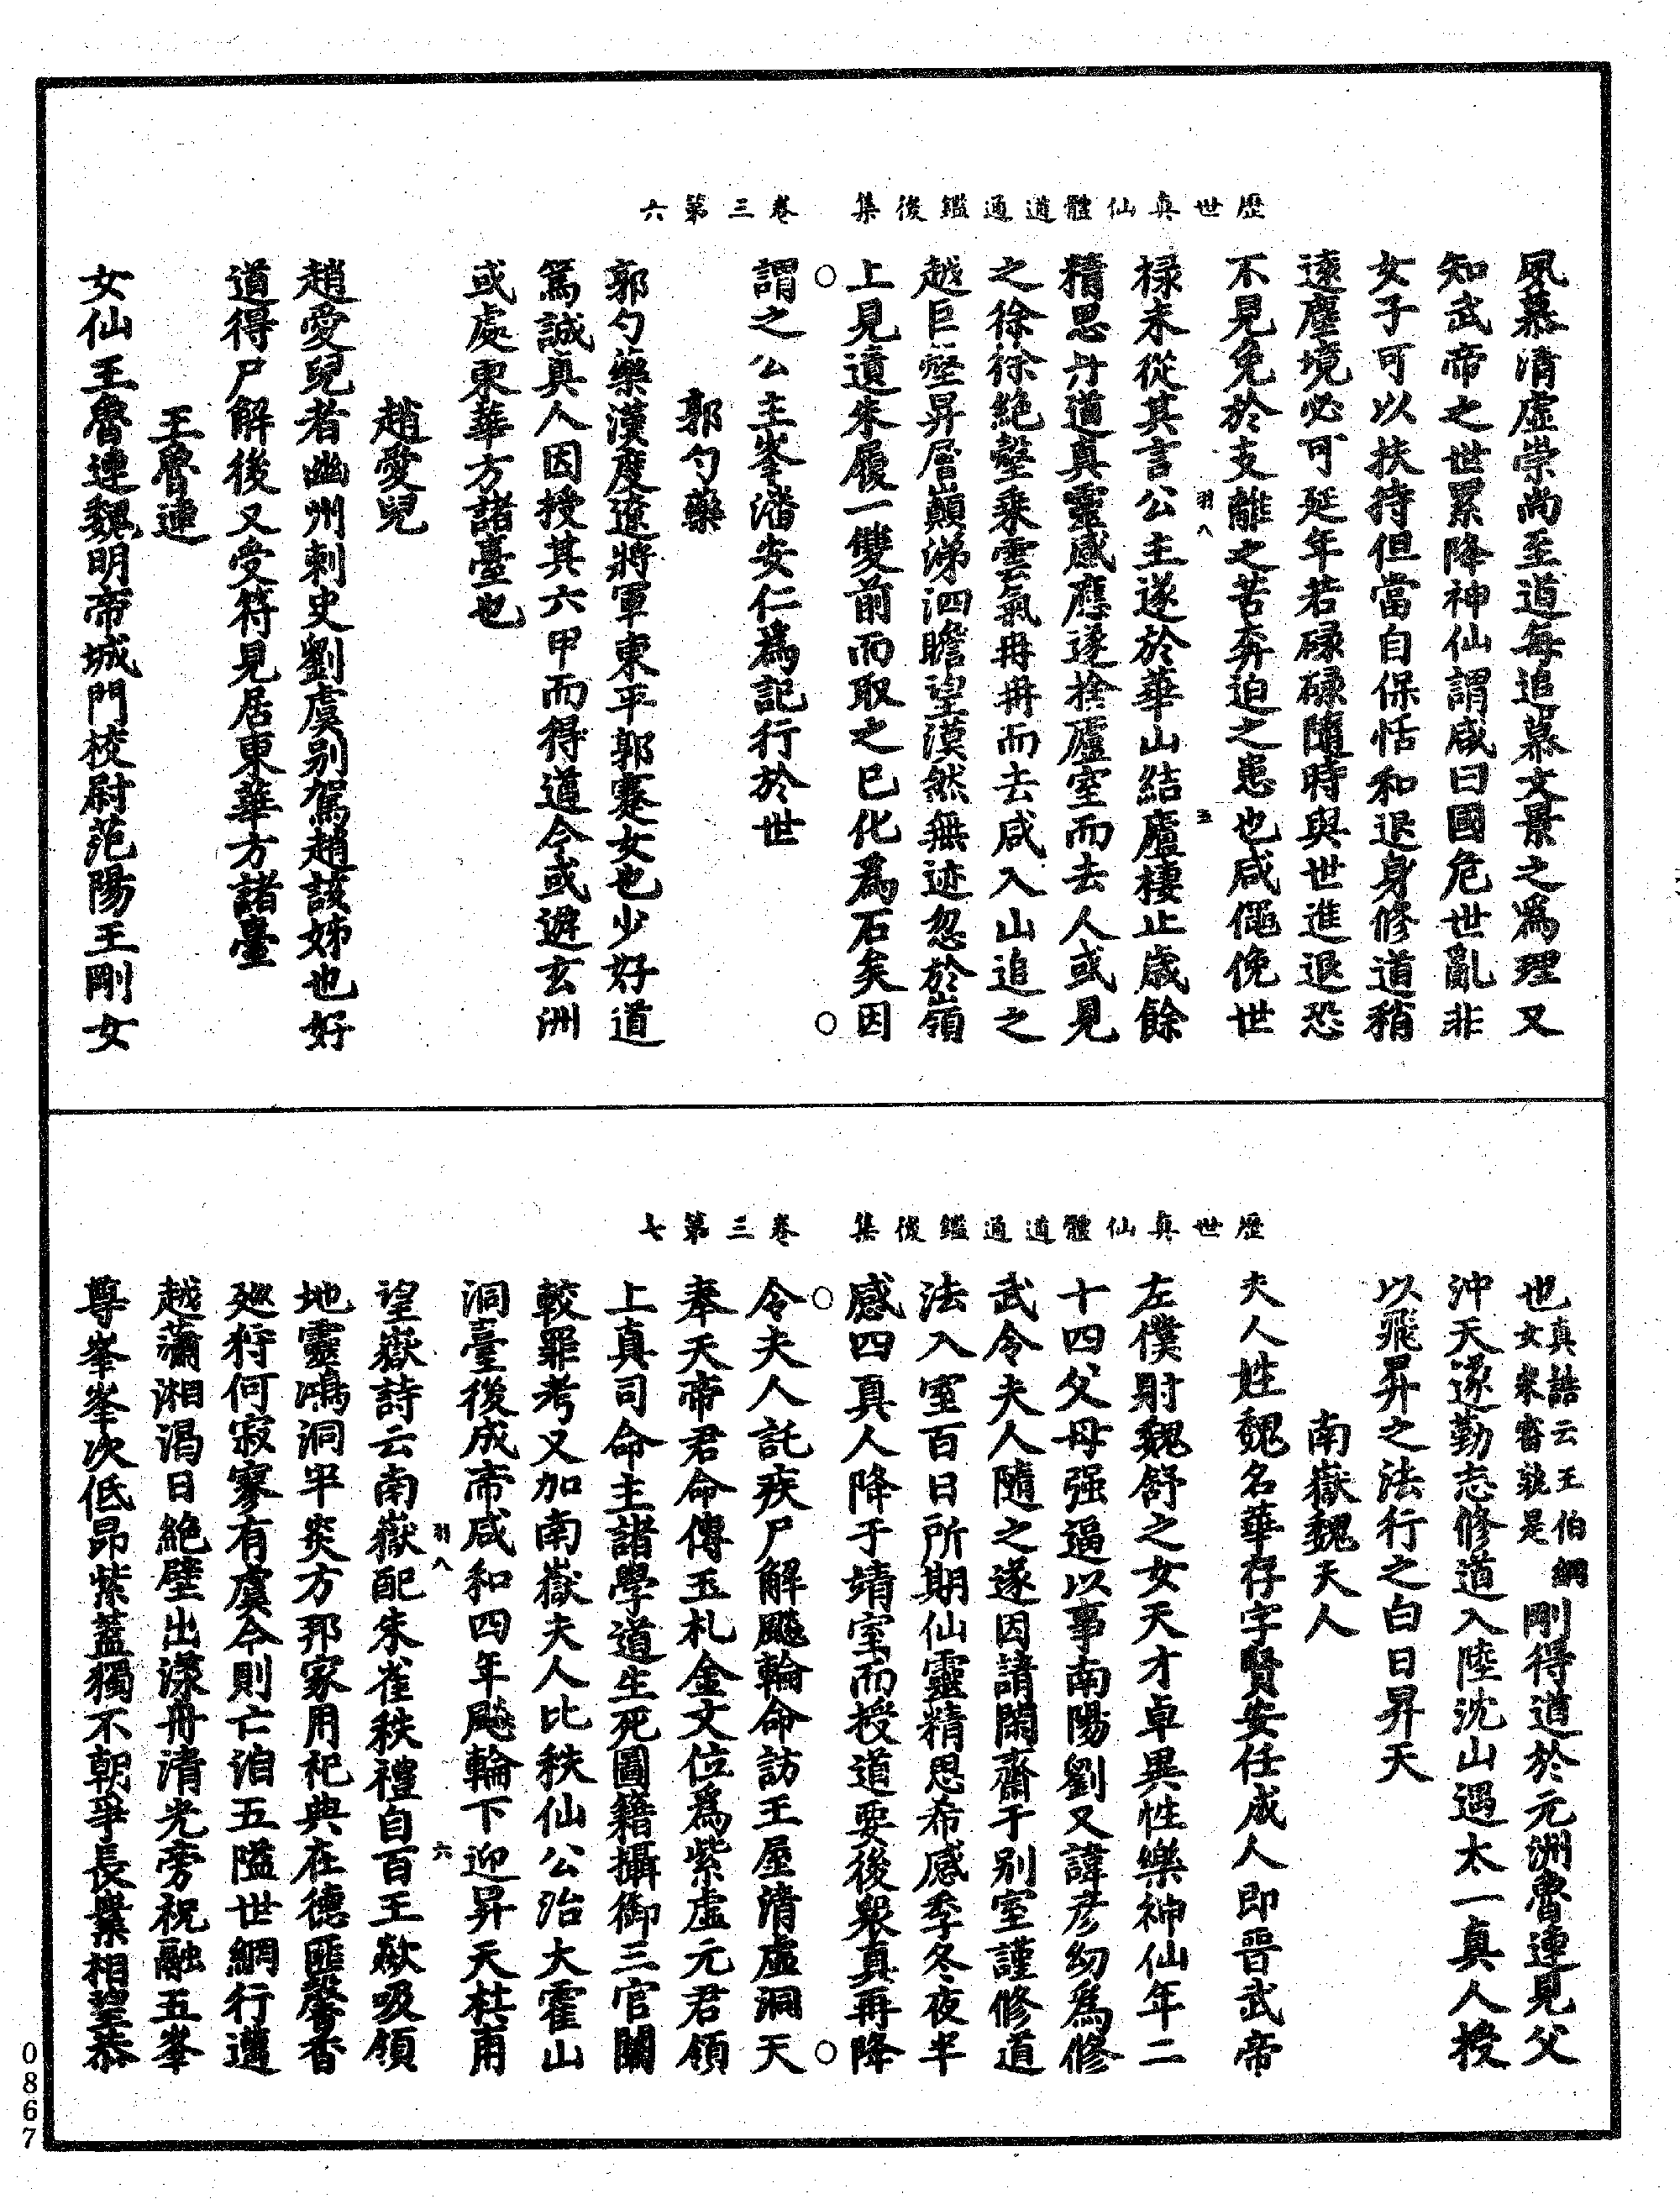 歷世真仙體道通鑑後集　卷三第六
風慕清虛崇尚至道每追慕文景之爲理又
知武帝之世累降神仙謂咸曰國危世亂非
女子可以扶持但當自保恬和退身修道稍
遠塵境必可延年若碌碌隨時與世進退恐
不見免於支離之苦奔迫之患也咸僶俛世
羽八　五
祿未從其言公主遂於華山結廬棲止歲餘
精思丹道真靈感應遂捨廬室而去人或見
之徐徐絶壑乘雲氣冉冉而去咸入山追之
越巨壑昇層巔涕泗瞻望漠然無迹忽於嶺
上見遺朱履一雙前而取之已化爲石矣因
謂之公主峯潘安仁爲記行於世
郭勺藥
郭勺藥漢度遼將軍東平郭騫女也少好道
篤誠真人因授其六甲而得道今或遊玄洲
或處東華方諸臺也
趙愛兒
趙愛兒者幽州刺史劉虞别駕趙該姊也好
道得尸解後又受符見居東華方諸臺
王魯連
女仙王魯連魏明帝城門校尉范陽王剛女
歷世真仙體道通鑑後集　卷三第七
也真誥云王伯綱女宋裔孰是剛得道於元洲魯連見父
沖天遂勤志修道入陸沈山遇太一真人授
以飛昇之法行之白日昇天
南嶽魏夫人
夫人姓魏名華存字賢安任成人即晉武帝
左僕射魏舒之女天才卓異性樂神仙年二
十四父母强逼以事南陽劉又諱彦幼爲修
武令夫人隨之遂因請閑齋于别室謹修道
法入室百日所期仙靈精思希感季冬夜半
感四真人降于靖室而授道要後衆真再降
令夫人託疾尸解飈輪命訪王屋清虛洞天
奉天帝君命傳玉札金文位爲紫虛元君領
上真司命主諸學道生死圖籍攝御三官關
較罪考又加南嶽夫人比秩仙公治大霍山
洞臺後成帝咸和四年飈輪下迎昇天杜甫
羽八　六
望嶽詩云南嶽配朱雀秩禮自百王歘吸領
地靈鴻洞半炎方邦家用祀典在德匪馨香
廵狩何寂寥有虞今則亡洎五隘世網行邁
越瀟湘渴日絶壁出漾舟清光旁祝融五峯
尊峯峯次低昂紫蓋獨不朝爭長嶪相望恭
0867